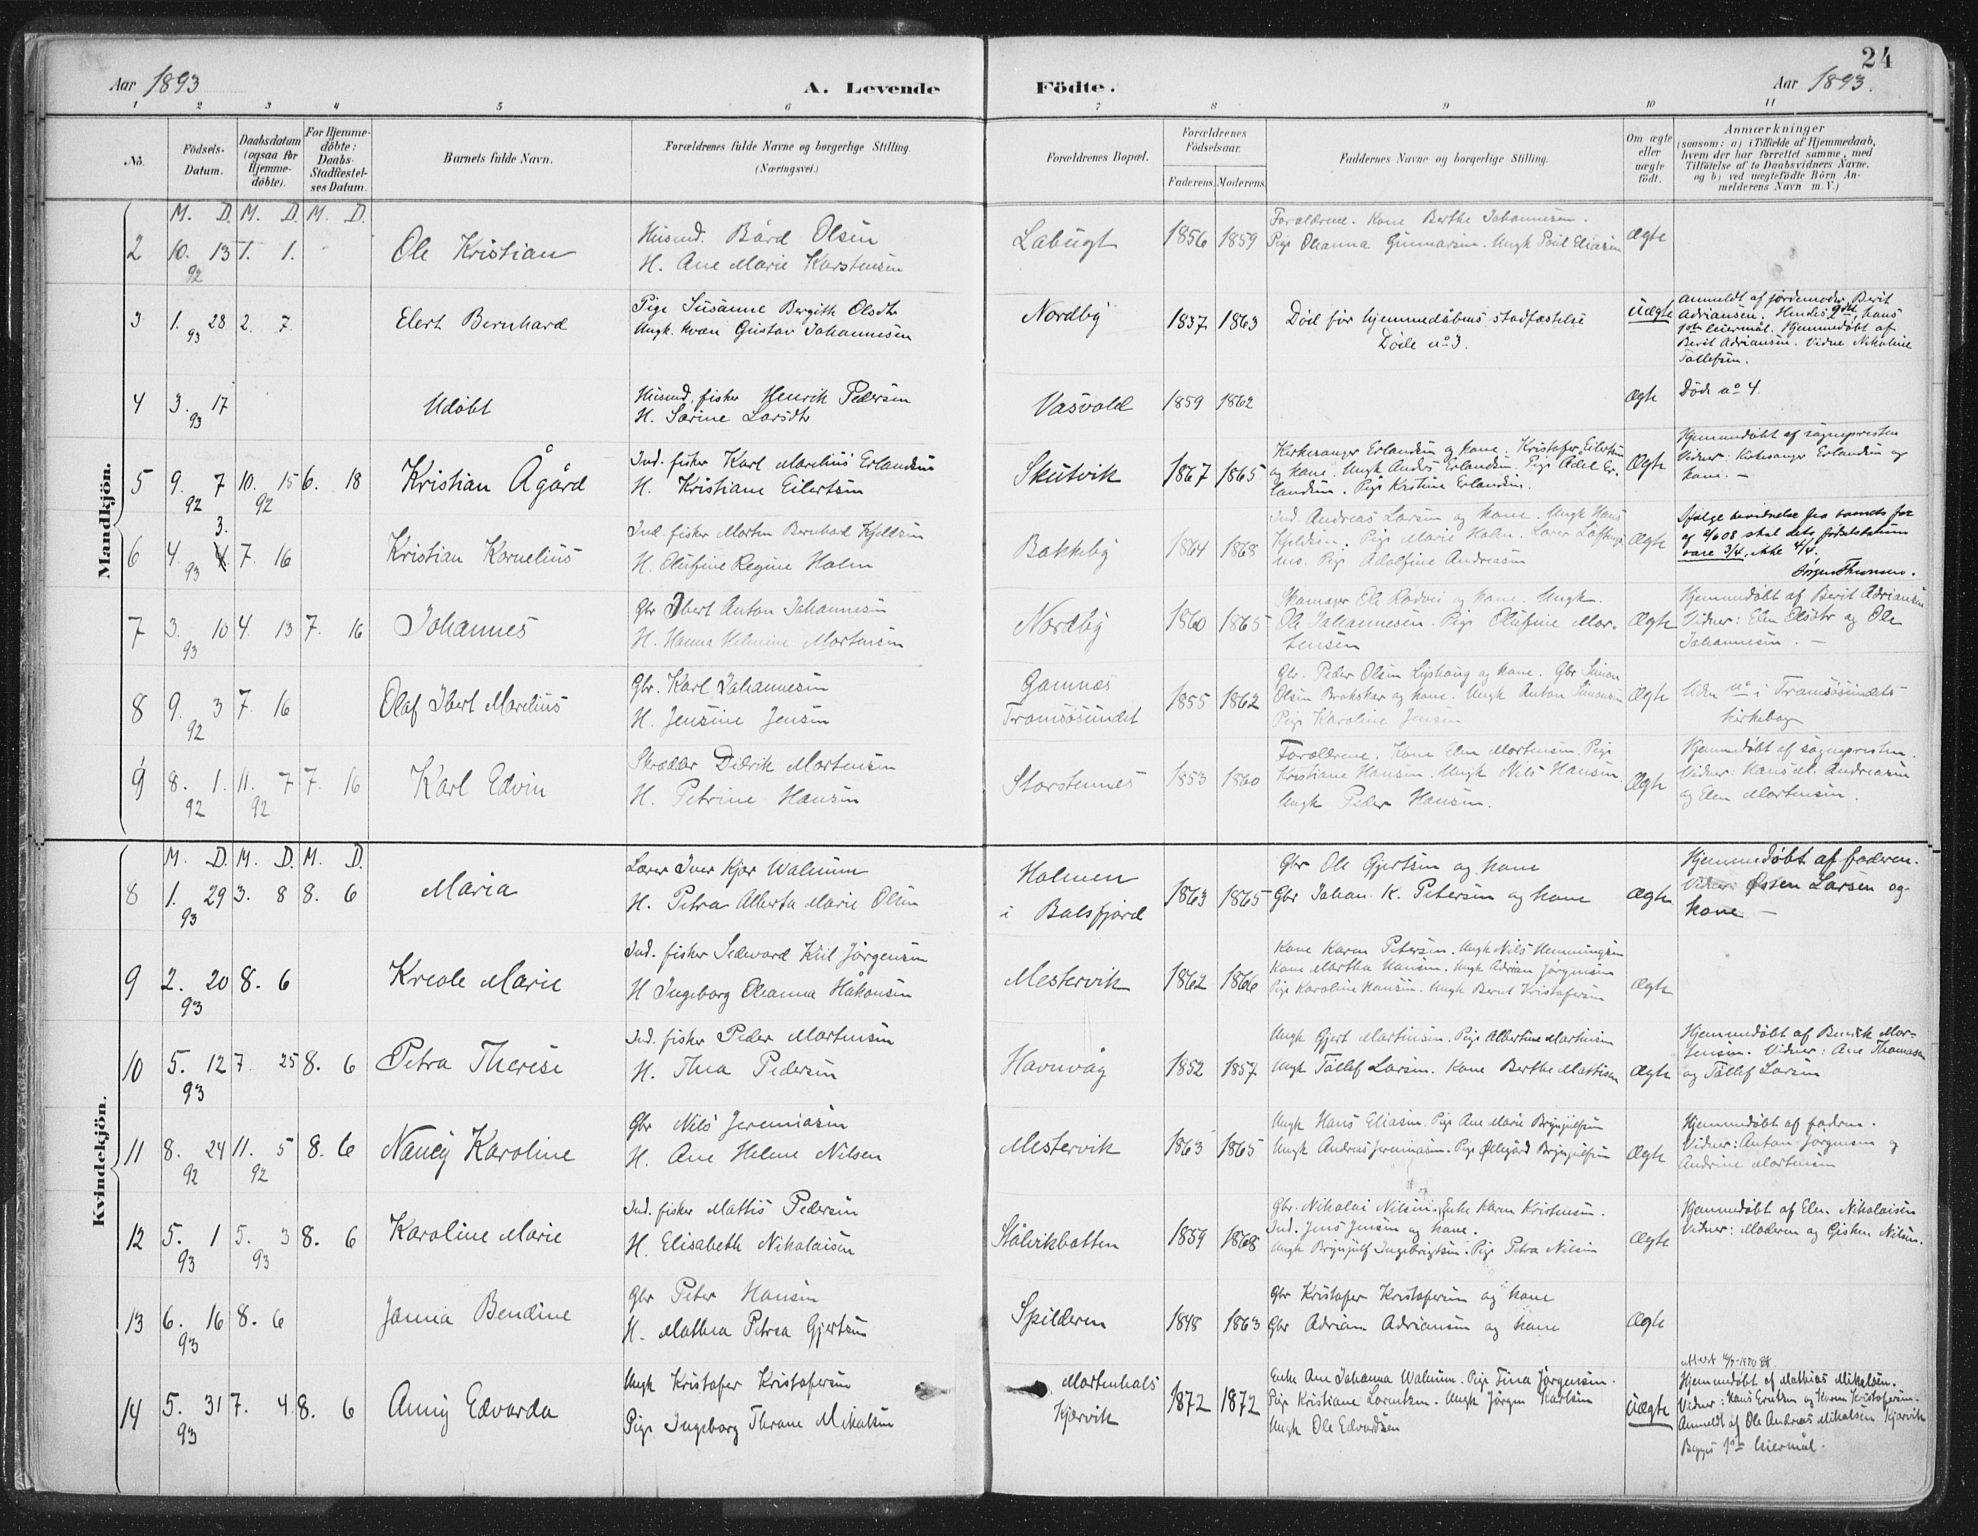 24
Aar 1893
A. Levende Födte.
Aar 1893.
1 2 3 4 5 6 7 8 9 10 11
No.
Födsels-Datum.
Daabsdatum (ogsaa for Hjemme-döbte).
For Hjemme-döbte: Daabs-Stadfæstel-ses Datum.
Barnets fulde Navn.
Forældrenes fulde Navne og borgerlige Stilling. (Næringsvei.)
Forældrenes Bopæl.
Forældrenes Födselsaar.
Faderens. Moderens.
Faddernes Navne og borgerlige Stilling.
Om ægte eller uægte födt.
Anmærkninger (saasom: a) i Tilfælde af Hjemmedaab, hvem der har forrettet samme, med Tilföielse af to Daabsvidners Navne, og b) ved uægtefödte Börn An-melderens Navn m. V.)
Mandkjön.
M. D. M. D. M. D.
2 10. 13 1. 1. Ole Kristian Husmd. Bård Olsen Labugt 1856 1859 Forældrene. Kone Berthe Johannesen. Ægte
92 H. Ane Marie Karstensen Pige Oleanna Gunnarsen. Ungk Poul Eliasen
3 1. 28 2. 7 Elert Bernhard Pige Susanne Bergith Olsdtr Nordby 1837 1863 Död för hjemmedåbens stadfæstelse Uægte Anmeldt af jordemoder Berit
93 Ungk. kvæn Gustav Johannesen Döde no 3. Adriansen. Hendes 2det, hans
1ste leiermål. Hjemmedøbt af
Berit Adriansen. Vidne Nikoline
Tollefsen.
4 3. 17 Udøbt Husmd. fisker Henrik Pedersen Vasvold 1859 1862 Ægte Døde no 4.
93 H. Sarine Larsdtr
5 9. 7 10. 15 6. 18 Kristian Ågård Ind. fisker Karl Marelius Erlandsen Skutvik 1867 1865 Kirkesanger Erlandsen og kone. Kristofer Eilertsen Ægte Hjemmedøbt af sognepresten
92 92 H. Kristiane Eilertsen og kone. Ungk Anders Erlandsen. Pige Adel Er- Vidner: Kirkesanger Erlandsen og
landsen. Pige Kristine Erlandsen. kone. —
6 4. 3. 7. 16 Kristian Kornelius Ind. fisker Morten Bernhard Kjeldsen Bakkeby 1864 1868 Ind. Andreas Larsen og kone. Ungk Hans Ægte Ifølge
93 H. Olufine Regine Holm Kjeldsen. Pige Marie Holm. skal dets fødselsdatum
Pige Adolfine Andreasen være 3/4, ikke 4/4.
7 3. 10 4. 13 7. 16 Johannes Gbr Ibert Anton Johannesen Nordby 1860 1865 Skomager Ole Rodvei og kone. Ungk. Ægte Hjemmedøbt af Berit Adriansen
93 H. Hanna Helmine Mortensen Ole Johannesen. Pige Olufine Mor- Vidner: Elen Olsdtr og Ole
tensen Johannesen. —
8 9. 3 7. 16 Olaf Ibert Marelius Gbr. Karl Johannesen Gamnes 1855 1862 Gbr. Peder Olsen og kone. Gbr Simon Ægte Uden no i Tromsøsundets
92 H. Jensine Jensen Tromsøsundet Olsen og kone. Ungk Anton Simonsen kirkebog
Pige Karoline Jensen
9 8. 1. 11. 7 7. 16 Karl Edvin Skrædder Didrik Mortensen Storstennes 1853 1860 Forældrene. Kone Elen Mortensen. Pige Ægte Hjemmedøbt af sognepresten.
92 92 H. Petrine Hansen Kristiane Hansen. Ungk Nils Hansen. Vidner: Hans Andreasen
Ungk Peder Hansen. og Elen Mortensen.
Kvindekjön.
M. D. M. D. M. D.
8 1. 29 3. 8 8. 6 Maria Lærer Iver Kjær Walnum Holmen 1863 1865 Gbr Ole Gjertsen og kone Ægte Hjemmedøbt af faderen.
93 H. Petra Alberta Marie Olsen i Balsfjord Gbr Johan K. Petersen og kone Vidner: Østen Larsen og
kone —
9 2. 20 8. 6 Kreole Marie Ind. fisker Sedevard Kiil Jørgensen Mestervik 1862 1866 Kone Karen Petersen. Ungk Nils Henningsen Ægte
93 H Ingeborg Oleanna Håkonsen Kone Martha Hansen. Ungk Adrian Jørgensen
Pige Karoline Hansen. Ungk Bernt Kristofersen
10 5. 12 7. 25 8. 6 Petra Therese Ind. fisker Peder Mortensen Havnvåg 1852 1857 Ungk Gjert Mortensen. Pige Albertine Mortensen Ægte Hjemmedøbt af Benrik Mor-
93 H. Thea Pedersen Ungk Tollef Larsen. Kone Berthe Mattisen tensen. Vidner: Ane Thomasen
og Tollef Larsen
11 8. 24 11. 5 8. 6 Nancy Karoline Gbr Nils Jeremiasen Mestervik 1863 1865 Ungk Hans Eliasen. Pige Ane Marie Brynjulfsen Ægte Hjemmedøbt af faderen.
92 92 H. Ane Helene Nilsen Ungk Andreas Jeremiasen. Pige Øllegård Brynjulfsen Vidner: Anton Jørgensen og
Andrine Mortensen
12 5. 1 5. 3 8. 6 Karoline Marie Ind. fisker Mattis Pedersen Stålvikbotten 1859 1868 Gbr. Nikolai Nilsen. Enke Karen Kristensen. Ægte Hjemmedøbt af Elen Nikolaisen
93 93 H. Elisabeth Nikolaisen Ind. Jens Jensen og kone. Vidner: Moderen og Gisken Nilsen.
Ungk Brynjulf Ingebrigtsen. Pige Petra Nilsen
13 6. 16 8. 6 Janna Bendine Gbr Peter Hansen Spilderen 1848 1863 Gbr Kristofer Kristofersen og kone Ægte
93 H. Mathea Petrea Gjertsen Gbr Adrian Adriansen og kone
14 5. 31 7. 4. 8. 6 Anny Edvarda Ungk Kristofer Kristofersen Mortenhals 1872 1872 Enke Ane Johanna Walnum. Pige Fina Jørgensen. Uægte Hjemmedøbt af Mathias Mikalsen.
93 Pige Ingeborg Thrane Mikalsen Kjærvik Pige Kristiane Lorentsen. Ungk Jørgen Karlsen Vidner: Hans Erntsen og Karen Kristofersen.
Ungk Ole Edvardsen Anmeldt af Ole Andreas Mikalsen Kjærvik
Begges 1ste leiermål.